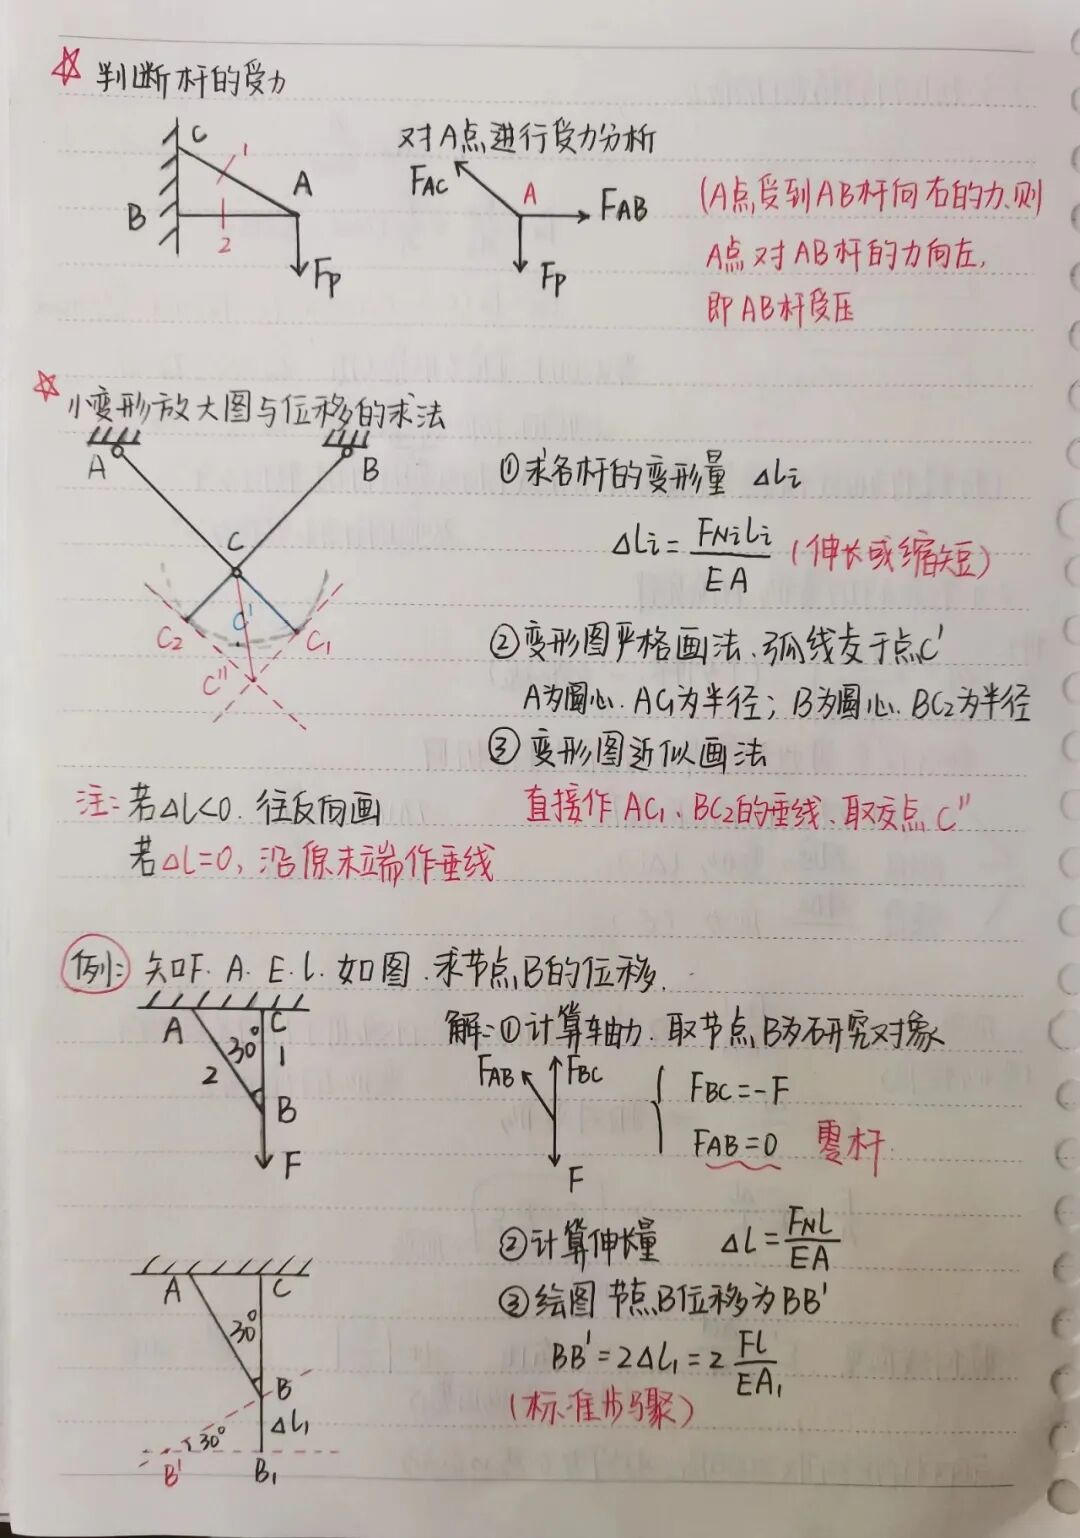 判断杆的受力
对A点进行受力分析
C
1
A
B
2
Fp
FAC
A
FAB
Fp
(A点受到AB杆向右的力,则
A点对AB杆的力向左,
即AB杆受压
小变形放大图与位移的求法
A
B
C
C2
C'
C1
C"
①求各杆的变形量 ΔLi
ΔLi = FNiLi / EA (伸长或缩短)
②变形图严格画法.弧线交于点C'
A为圆心.AC1为半径; B为圆心.BC2为半径
③ 变形图近似画法
直接作AC1、BC2的垂线、取交点C"
注: 若ΔL<0.往反向画
若ΔL=0,沿原末端作垂线
例: 知F.A.E.l.如图.求节点B的位移.
A
C
30°
1
2
B
F
解: ①计算轴力.取节点B为研究对象
FAB
FBC
F
FBC=-F
FAB=0 零杆.
②计算伸长量 ΔL = FNL / EA
③绘图 节点B位移为BB'
BB'=2ΔL1=2 Fl / EA1
(标准步骤)
A
C
30°
B
ΔL1
30°
B'
B1